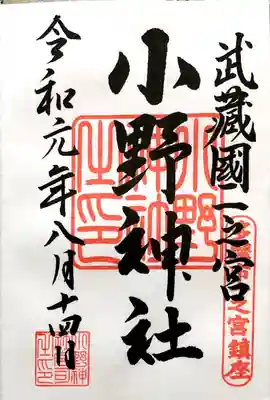 武藏國一之宮
小野神社
令和元年八月十四日
之宮鎮座